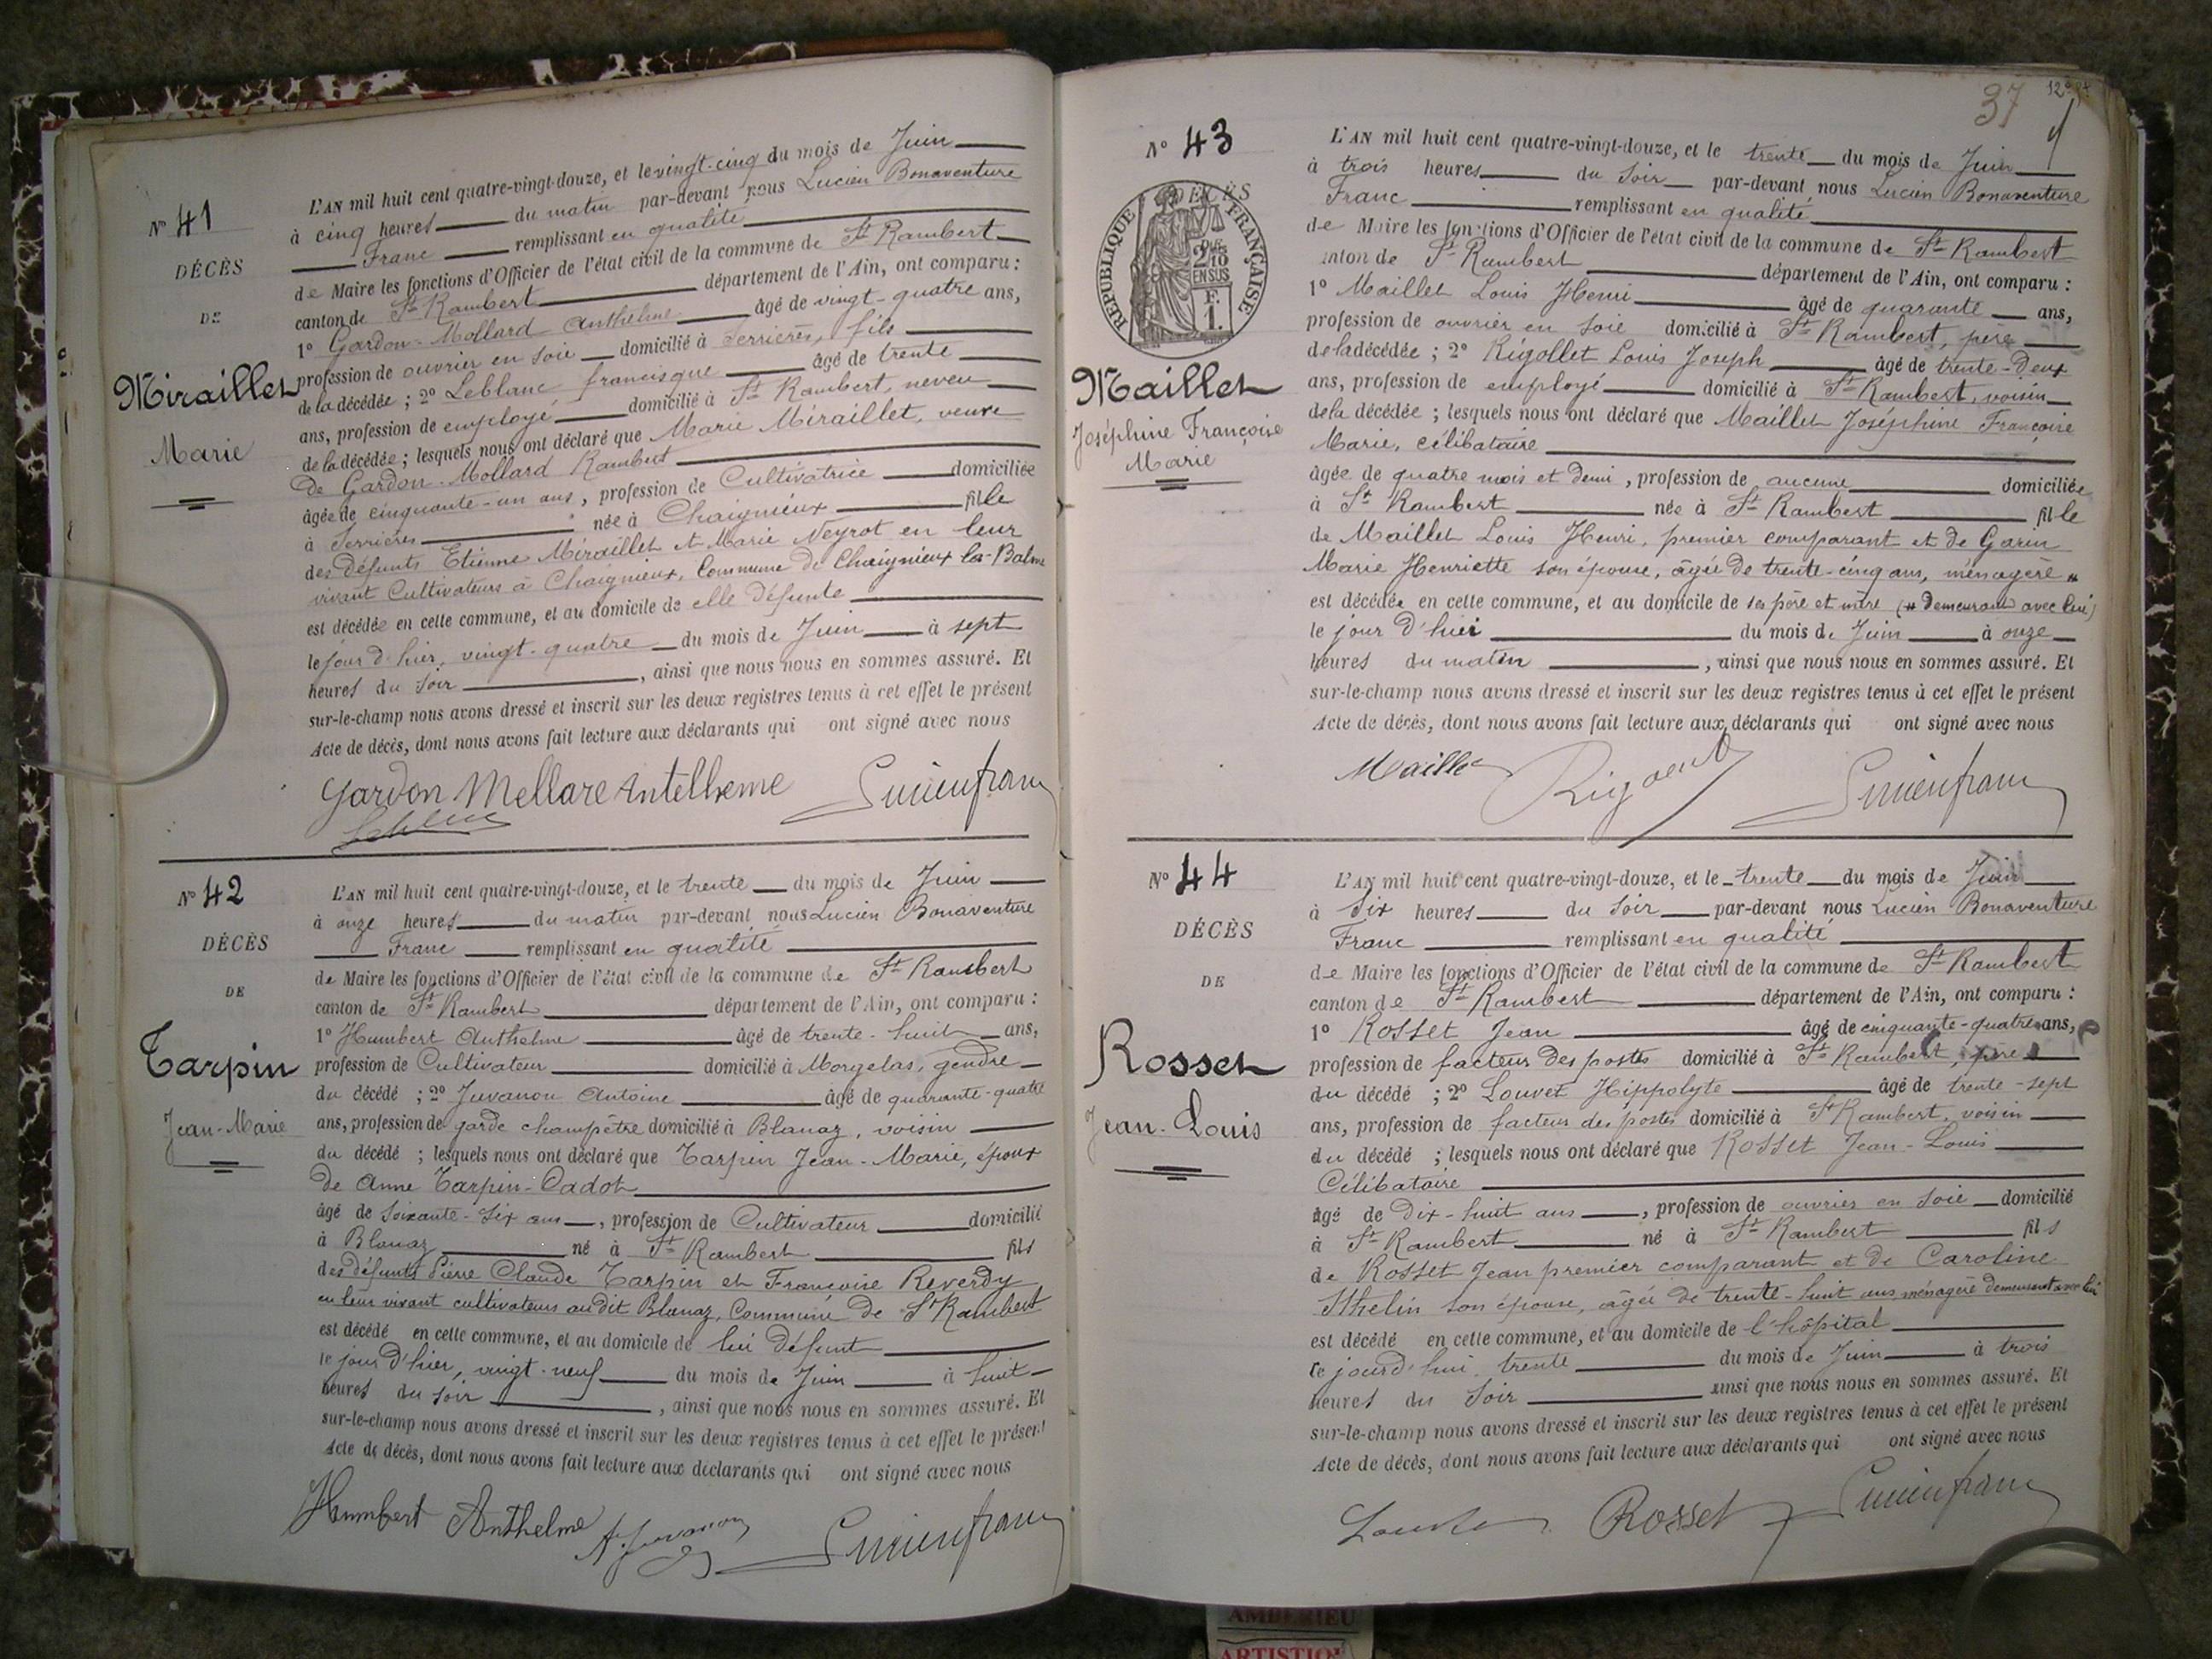 N° 41
DÉCÈS
DE
Miraillet
Marie
L'AN mil huit cent quatre-vingt-douze, et le vingt-cinq du mois de Juin
à cinq heures du matin par-devant nous Lucien Bonaventure
Franc remplissant en qualité
de Maire les fonctions d'Officier de l'état civil de la commune de St Rambert
canton de St Rambert département de l'Ain, ont comparu :
1° Gardon-Mollard Anthelme âgé de vingt-quatre ans,
profession de ouvrier en soie domicilié à Serrières, fils
de la décédée ; 2° Leblanc francisque âgé de trente
ans, profession de employé domicilié à St Rambert, neveu
de la décédée ; lesquels nous ont déclaré que Marie Miraillet, veuve
De Gardon-Mollard Rambert
âgée de cinquante-un ans, profession de Cultivatrice domiciliée
à Serrières née à Chaignieux fille
des défunts Etienne Miraillet et Marie Neyrot en leur
vivant Cultivateurs à Chaignieux, Commune de Chaignieux la-Balme
est décédée en cette commune, et au domicile de elle défunte
le jour d'hier, vingt-quatre du mois de Juin à sept
heures du soir , ainsi que nous nous en sommes assuré. Et
sur-le-champ nous avons dressé et inscrit sur les deux registres tenus à cet effet le présent
Acte de décès, dont nous avons fait lecture aux déclarants qui ont signé avec nous
Gardon Mellare Antelheme Lucienfranc
N° 42
DÉCÈS
DE
Tarpin
Jean-Marie
L'AN mil huit cent quatre-vingt-douze, et le trente du mois de Juin
à onze heures du matin par-devant nous Lucien Bonaventure
Franc remplissant en qualité
de Maire les fonctions d'Officier de l'état civil de la commune de St Rambert
canton de St Rambert département de l'Ain, ont comparu :
1° Humbert Anthelme âgé de trente-huit ans,
profession de Cultivateur domicilié à Morgelas, gendre
du décédé ; 2° Juvanon Antoine âgé de quarante-quatre
ans, profession de garde champêtre domicilié à Blanaz, voisin
du décédé ; lesquels nous ont déclaré que Tarpin Jean-Marie, époux
De Anne Tarpin-Cadot
âgé de soixante-six ans , profession de Cultivateur domicilié
à Blanaz né à St Rambert fils
des défunts Pierre Claude Tarpin et Françoise Reverdy
en leur vivant cultivateurs audit Blanaz, Commune de St Rambert
est décédé en cette commune, et au domicile de lui défunt
le jour d'hier, vingt-neuf du mois de Juin à huit
heures du soir , ainsi que nous nous en sommes assuré. Et
sur-le-champ nous avons dressé et inscrit sur les deux registres tenus à cet effet le présent
Acte de décès, dont nous avons fait lecture aux déclarants qui ont signé avec nous
Humbert Anthelme A. Juvanon Lucienfranc
37
N° 43
DÉCÈS
RÉPUBLIQUE FRANÇAISE
2/10
EN SUS
F.
1.
Maillet
Joséphine Françoise
Marie
L'AN mil huit cent quatre-vingt-douze, et le trente du mois de Juin
à trois heures du soir par-devant nous Lucien Bonaventure
Franc remplissant en qualité
de Maire les fonctions d'Officier de l'état civil de la commune de St Rambert
canton de St Rambert département de l'Ain, ont comparu :
1° Maillet Louis Henri âgé de quarante ans,
profession de ouvrier en soie domicilié à St Rambert, père
de la décédée ; 2° Rigollet Louis Joseph âgé de trente-deux
ans, profession de employé domicilié à St Rambert, voisin
de la décédée ; lesquels nous ont déclaré que Maillet Joséphine Françoise
Marie, célibataire
âgée de quatre mois et demi , profession de aucune domiciliée
à St Rambert née à St Rambert fille
de Maillet Louis Henri, premier comparant et de Garin
Marie Henriette son épouse, âgée de trente-cinq ans, ménagère #
est décédée en cette commune, et au domicile de ses père et mère (# demeurant avec lui)
le jour d'hier du mois de Juin à onze
heures du matin , ainsi que nous nous en sommes assuré. Et
sur-le-champ nous avons dressé et inscrit sur les deux registres tenus à cet effet le présent
Acte de décès, dont nous avons fait lecture aux déclarants qui ont signé avec nous
Maillet Lucienfranc
N° 44
DÉCÈS
DE
Rosset
Jean-Louis
L'AN mil huit cent quatre-vingt-douze, et le trente du mois de Juin
à six heures du soir par-devant nous Lucien Bonaventure
Franc remplissant en qualité
de Maire les fonctions d'Officier de l'état civil de la commune de St Rambert
canton de St Rambert département de l'Ain, ont comparu :
1° Rosset Jean âgé de cinquante-quatre ans,
profession de facteur des postes domicilié à St Rambert, père
du décédé ; 2° Louvet Hippolyte âgé de trente-sept
ans, profession de facteur des postes domicilié à St Rambert, voisin
du décédé ; lesquels nous ont déclaré que Rosset Jean-Louis
Célibataire
âgé de dix-huit ans , profession de ouvrier en soie domicilié
à St Rambert né à St Rambert fils
de Rosset Jean premier comparant et de Caroline
Sthelin son épouse, âgée de trente-huit ans ménagère demeurant avec lui
est décédé en cette commune, et au domicile de l'hôpital
ce jourd'hui trente du mois de Juin à trois
heures du soir ainsi que nous nous en sommes assuré. Et
sur-le-champ nous avons dressé et inscrit sur les deux registres tenus à cet effet le présent
Acte de décès, dont nous avons fait lecture aux déclarants qui ont signé avec nous
Rosset Lucienfranc
AMBERIEU